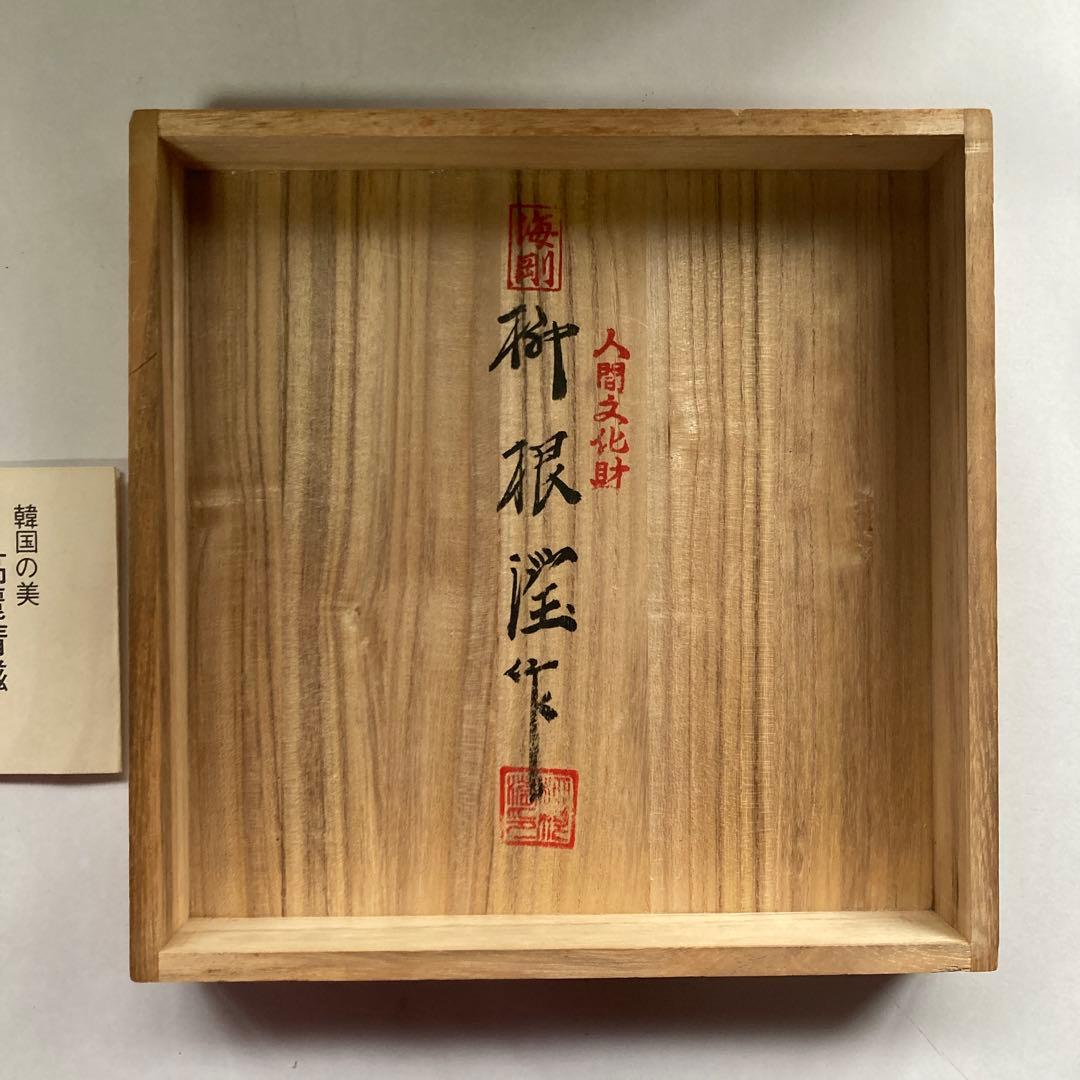 海剛
人間文化財
柳根瀅作
韓国の美
高麗青磁